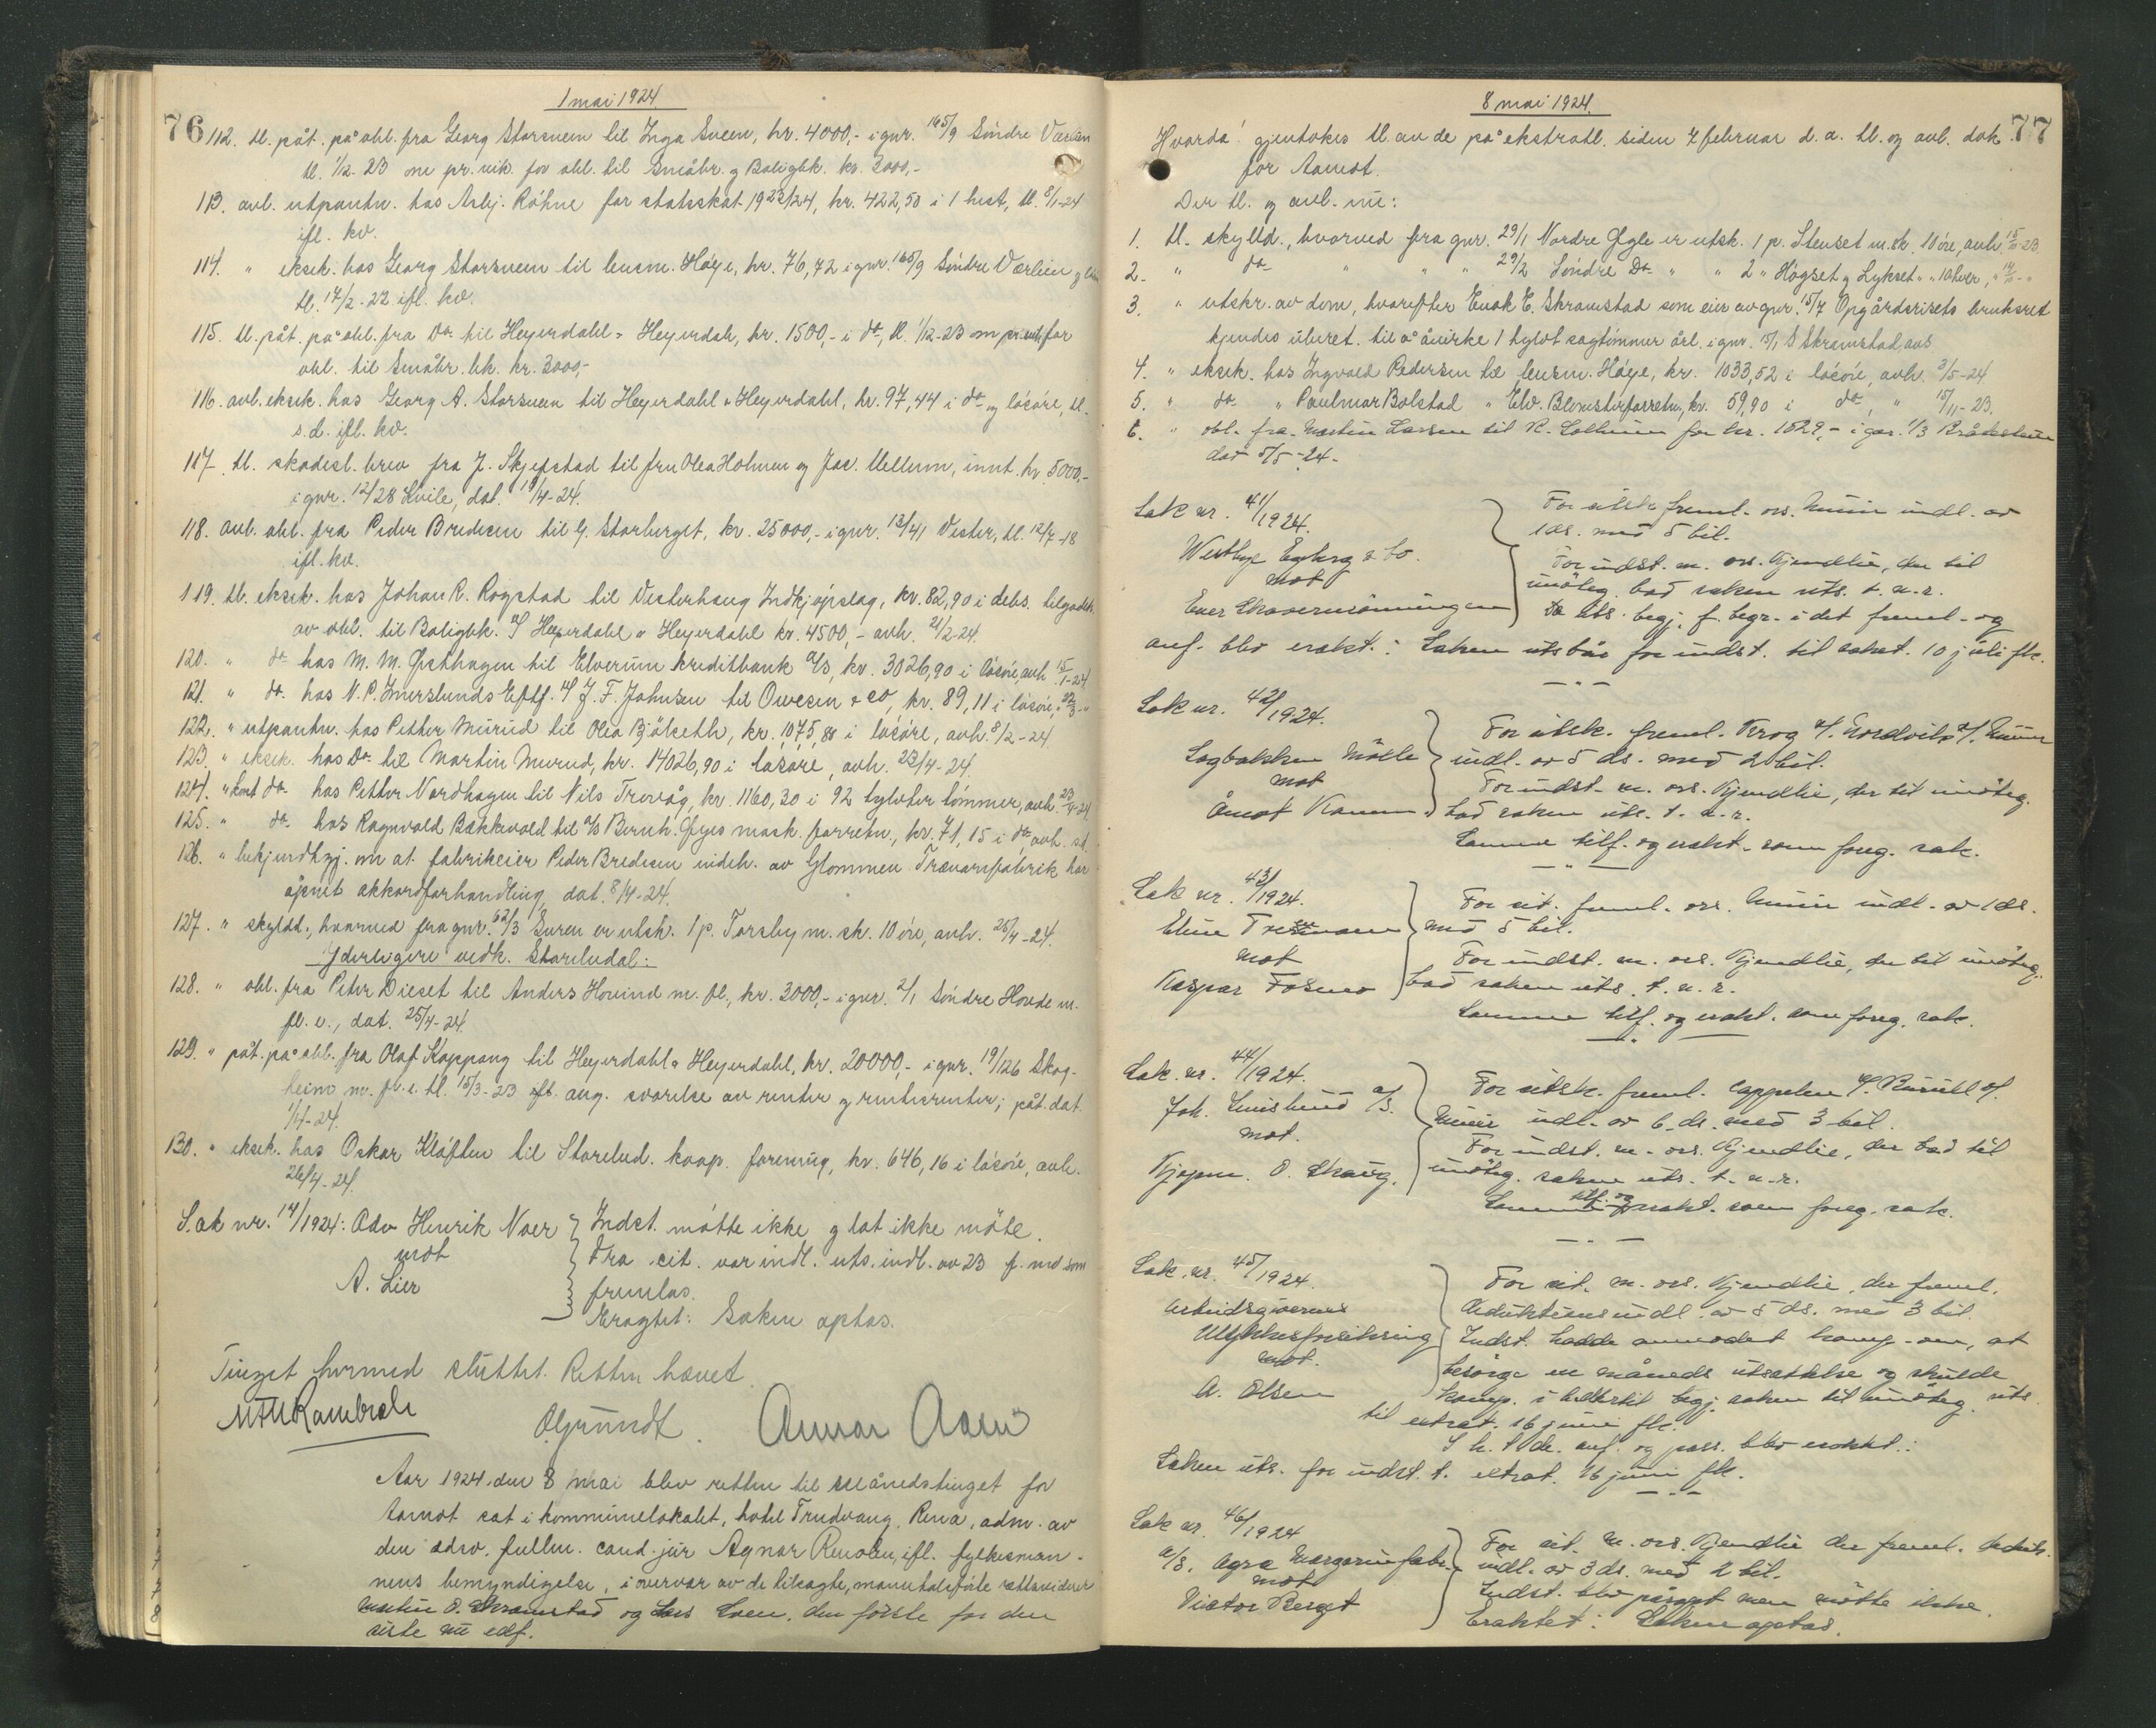 1 mai 1924
76
112. tl. påt. på obl. fra Georg Storsveen til Inga Sveen, kr. 4000,- i gnr. 165/9 Söndre Værlien
tl. 1/2-23 om pr. vik. for obl. til Småbr. og Boligbk. kr. 3000,-
113. avl. utpantn. hos Asbj. Röhne for statsskat 1923/24, kr. 422,50 i 1 hest, tl. 8/1-24
ifl. kv.
114. " eksek. hos Georg Storsveen til lensm. Höye, kr. 76,72 i gnr. 165/9 Söndre Værlien og
tl. 17/2-22 ifl. kv.
115. tl. påt. på obl. fra Do til Heyerdahl & Heyerdahl, kr. 1500,- i do, tl. 1/12-23 om pr. vik. for
obl. til Småbr. bk. kr. 3000,-
116. avl. eksek. hos Georg A. Storsveen til Heyerdahl & Heyerdahl, kr. 97,44 i do og lösöre, tl.
s.d. ifl. kv.
117. tl. skadesl. brev fra J. Skjefstad til fru Olea Holmen og Jac. Mellum, innt. kr. 5000,-
i gnr. 12/28 Kvile, dat. 19/4-24.
118. avl. obl. fra Peder Bredesen til G. Storberget, kr. 25000,- i gnr. 13/41 Vester, tl. 12/7-18
ifl. kv.
119. tl. eksek. hos Johan R. Rogstad til Vesterhaug Indkjöpslag, kr. 82,90 i debs. tilgodeh.
av obl. til Boligbk. v/ Heyerdahl & Heyerdahl kr. 4500,- avh. 21/2-24.
120. " do hos M. M. Östhagen til Elverum kreditbank A/S, kr. 3026,90 i lösöre, avh. 15/1-24
121. " do. hos N. P. Imerslunds Eftf. v/ J. F. Johnsen til Owesen & co, kr. 89,11 i lösöre, " 22/3-"
122. " utpantn. hos Petter Mürüd til Olea Bjölseth, kr. 1075,88 i lösöre, avh. 8/2-24
123. " eksek. hos Do til Martin Murud, kr. 14026,90 i lösöre, avh. 23/4-24.
124. " do hos Petter Nordhagen til Nils Trovåg, kr. 1160,30 i 92 tylvter tömmer, avh. 23/4-24
125. " do. hos Ragnvald Bækkevold til A/S Bernh. Gjes mask. forretn., kr. 71,15 i do, avh. s.d.
126. " bekjendtgj. om at fabrikeier Peder Bredesen indeh. av Glommen Trævarefabrik har
åpnet akkordforhandling, dat. 8/4-24.
127. " skyldd., hvorved fra gnr. 62/3 Suren er utsk. 1 p. Torsby m. sk. 10 öre, avh. 25/4-24.
Yderligere vedk. Storelvdal:
128. " obl. fra Peter Dieset til Anders Hovind m. fl., kr. 3000,- i gnr. 2/1 Söndre Hovde m.
fl. e., dat. 25/4-24.
129. " påt. på obl. fra Olaf Koppang til Heyerdahl & Heyerdahl, kr. 20000,- i gnr. 19/126 Skog-
heim m. fl. e. tl. 15/3-23 ang. svarelse av renter og rentesrenter; påt. dat.
1/4-24.
130. " eksek. hos Oskar Kløften til Storelvd. koop. forening, kr. 646,16 i lösöre, avh.
26/4-24.
Sak nr. 14/1924: Adv Henrik Naer
mot
A. Lier
Indst. mötte ikke og lot ikke möte.
Fra cit. var indl. uts. indl. av 23 f. md som
fremlas.
Eragtet: Saken optas.
Tinget hermed sluttet. Retten hævet.
O. Gjrundt. Annar Aasen
Aar 1924 den 8 mai blev retten til månedstinget for
Aamot sat i kommunelokalet, hotel Trudvang, Rena, adm. av
den edsv. fullm. cand. jur Agnar Renolen, ifl. fylkesman-
nens bemyndigelse, i overvær av de tilsagte, mantalsförte rettsvidner
Martin O. Skramstad og Lars Loen, den förste for den
siste nu edf.
8 mai 1924.
77
Hvorda! gjentokes tl. av de på ekstratl. siden 7 februar d.a. tl. og avl. dok.
for Aamot.
Der tl. og avl. nu:
1. tl. skylld., hvorved fra gnr. 29/1 Nordre Gjgle er utsk. 1 p. Stenset m. sk. 10 öre, avh.
2. " do " " " 29/2 Söndre Do " " 2 " Högset og Lykset " " 10 hver,
3. " utskr. av dom, hvorefter Enok E. Skramstad som eier av gnr. 15/7 Opgårdsrisets bruksret
kjendes uberet. til å åvirke 1 tylvt sagtömmer årl. i gnr. 15/1 S Skramstad, avs
4. " eksek. hos Ingvald Pedersen til lensm. Höye, kr. 1033,52 i lösöre, avh. 3/5-24
5. " do " Paulmar Bolstad " Elv. Blomsterforretn., kr. 59,90 i do, " 15/11-23.
6. " obl. fra Martin Larsen til R. Sollum for kr. 1629,- i gnr. 1/3
dat 5/5-24-
Sak nr. 41/1924.
Westbye Egeberg & Co.
mot
For utsk. freml. ors. Munin indl. av
1 ds. med 5 bil.
For indst. m. ors. Kjendlie, der til
imöteg. bad saken uts. t. n. r.
De uts. begj. f. begr. i det freml. og
anf. blev erakt.: Saken utsbår for indst. til sakst. 10 juli fk.
Sak nr. 42/1924.
Sagbakken Mölle
mot
Åmot Komm.
For utsk. freml. Krog v/ Nordvik v/ Munin
indl. av 5 ds. med 2 bil.
For indst. m. ors. Kjendlie, der til imöteg.
bad saken uts. t. n. r.
Samme tilf. og erakt. som foreg. sak.
Sak nr. 43/1924.
mot
Kaspar Fosmo
For cit. freml. ors. Munin indl. av 1 ds.
med 5 bil.
For indst. m. ors. Kjendlie, der til imöteg.
bad saken uts. t. n. r.
Samme tilf. og erakt. som foreg. sak.
Sak nr. 44/1924.
mot.
Kjøpm. O. Skaug.
For utsk. freml. Cappelen v/
Munin indl. av 6 ds. med 3 bil.
For indst. m. ors. Kjendlie, der bad til
imöteg. saken uts. t. n. r.
Samme tilf. og erakt. som foreg. sak.
Sak nr. 45/1924.
Arbeidsgivernes
Ulykkesforsikring
mot.
A. Olsen
For cit. m. ors. Kjendlie, der freml.
deduktionsindl. av 5 ds. med 3 bil.
Indst. hadde anmodet komp. om, at
besörge en måneds utsættelse og skulde
komp. i henhertil begj. saken til imöteg. uts.
til extrat. 16 juni fk.
anf. og pass. blev erakt.:
Saken uts. for indst. t. extrat. 16 juni fk.
Sak nr. 46/1924
A/S. Agra Margarinfabr.
mot
Victor Berget
For cit. m. ors. Kjendlie der freml. deduk.
indl. av 3 ds. med 2 bil.
Indst. blev påropt men mötte ikke.
Eraktet: Saken optas.